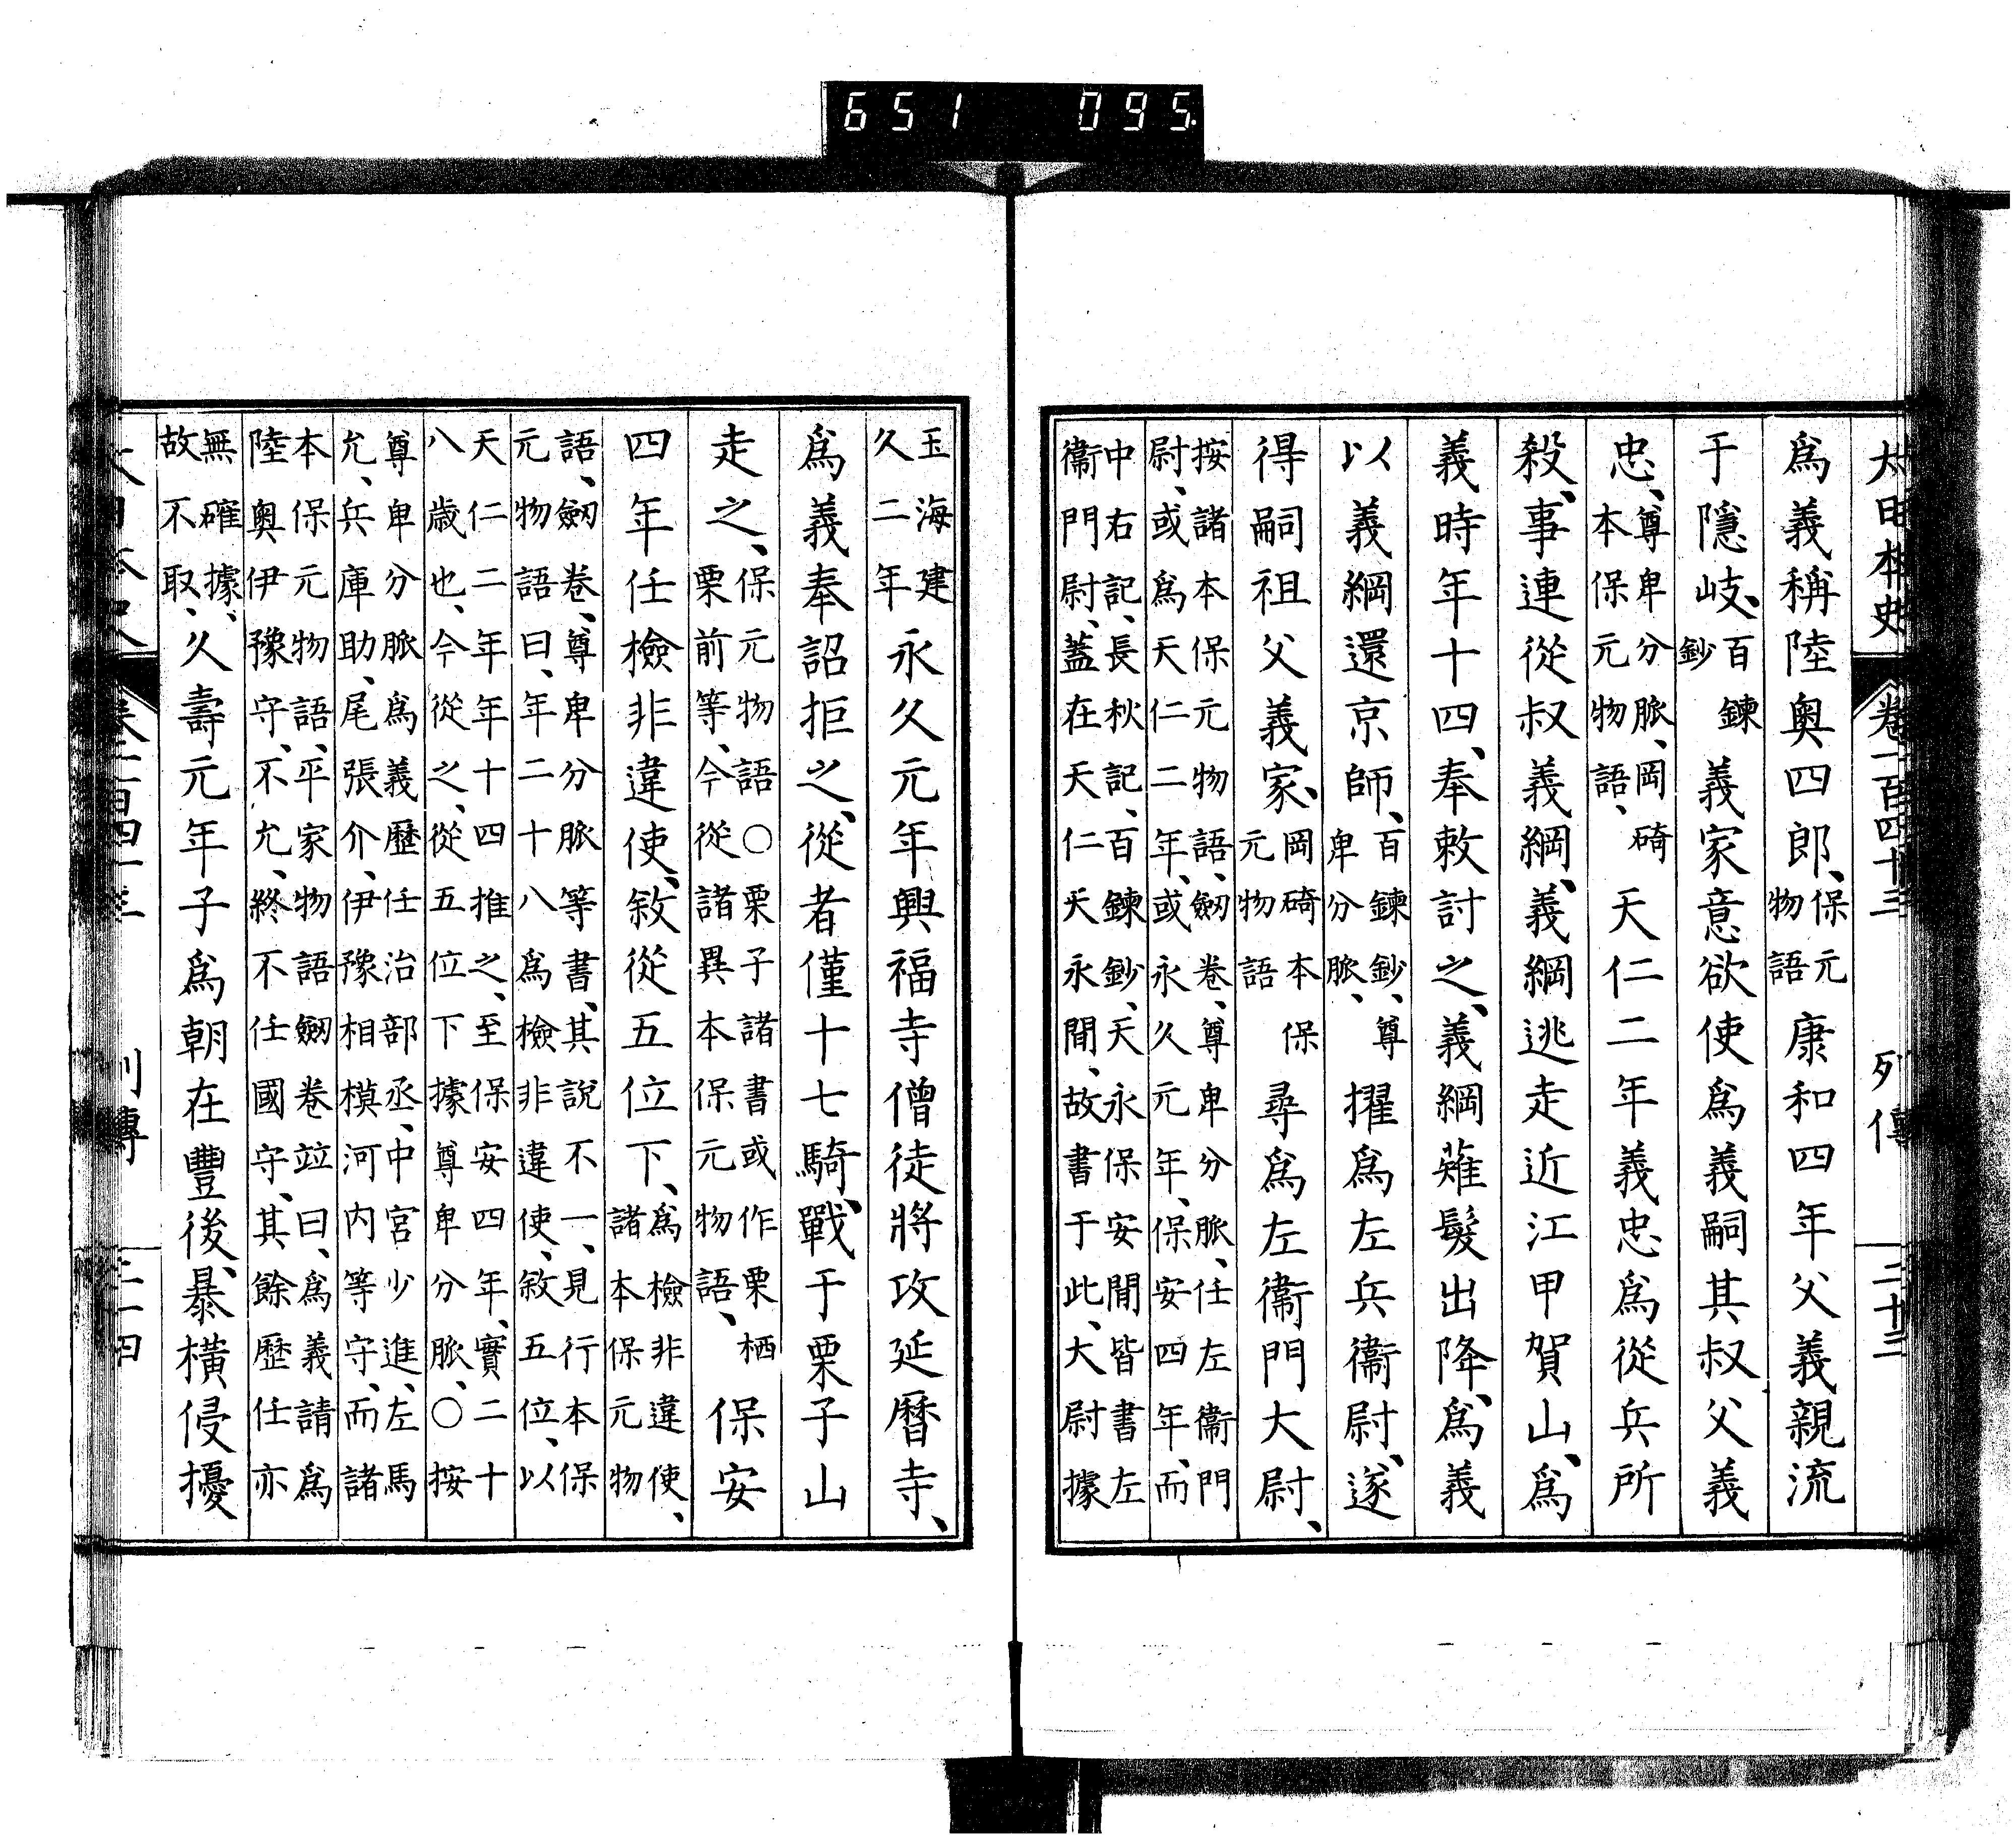 大日本史 卷一百四十三 列傳 二十三
爲義稱陸奧四郎、保元物語康和四年父義親流
于隱岐、百鍊鈔義家意欲使爲義嗣其叔父義
忠、尊卑分脈、岡碕本保元物語、天仁二年義忠爲從兵所
殺、事連從叔義綱、義綱逃走近江甲賀山、爲
義時年十四、奉敕討之、義綱薙髮出降、爲義
以義綱還京師、百鍊鈔、尊卑分脈、擢爲左兵衞尉、遂
得嗣祖父義家、岡碕本保元物語尋爲左衞門大尉、
按諸本保元物語、劒卷、尊卑分脈、任左衞門
尉、或爲天仁二年、或永久元年、保安四年、而
中右記、長秋記、百鍊鈔、天永保安間皆書左
衞門尉、蓋在天仁天永間、故書于此、大尉據
玉海建久二年永久元年興福寺僧徒將攻延曆寺、
爲義奉詔拒之、從者僅十七騎、戰于栗子山
走之、保元物語○栗子諸書或作栗栖栗前等、今從諸異本保元物語、保安
四年任檢非違使、敘從五位下、爲檢非違使、諸本保元物
語、劒卷、尊卑分脈等書、其說不一、見行本保
元物語曰、年二十八爲檢非違使、敘五位、以
天仁二年年十四推之、至保安四年、實二十
八歲也、今從之、從五位下據尊卑分脈、○按
尊卑分脈爲義歷任治部丞、中宮少進、左馬
允、兵庫助、尾張介、伊豫相模河内等守、而諸
本保元物語、平家物語劒卷竝曰、爲義請爲
陸奧伊豫守、不允、終不任國守、其餘歷任亦
無確據、故不取、久壽元年子爲朝在豐後、暴橫侵擾
大日本史 卷一百四十三 列傳 二十四
651 095